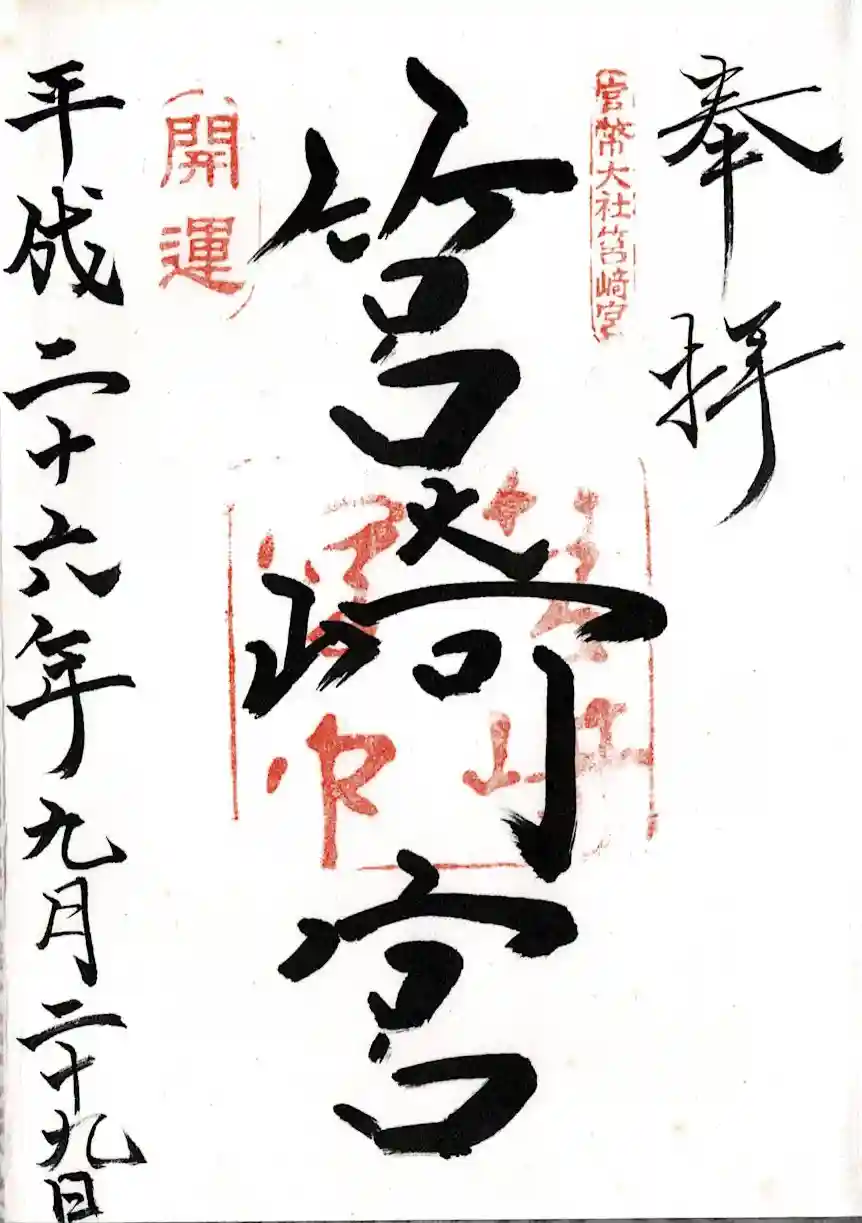 奉拝
官幣大社筥崎宮
筥崎宮
開運
平成二十六年九月二十九日